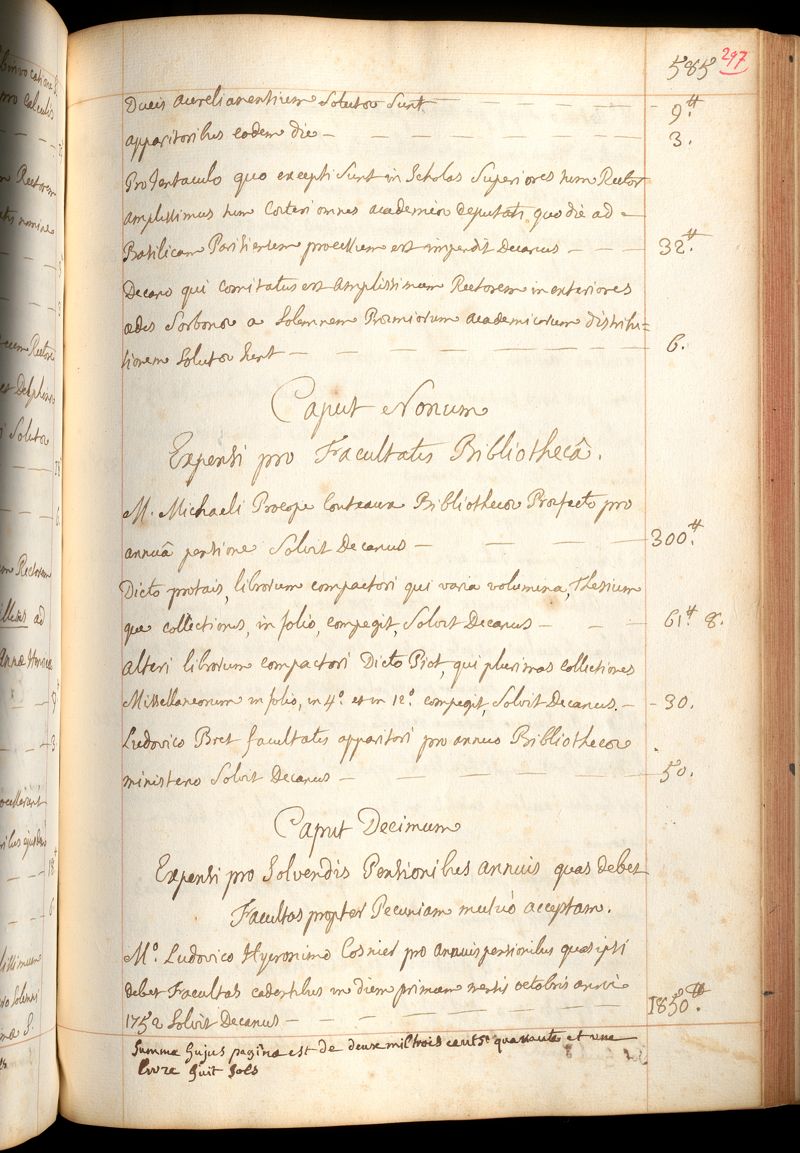 585 297
Ducis aurelianensium Solutae Sunt — 9.tt
apparitoribus eodem die — 3.
Pro Jentaculo quo excepti Sunt in Scholas Superiores tum Rector
amplissimus tum Coeteri omnes academiae deputati, quo die ad
Basilicam Parisiensem processum est impendit Decanus — 32.tt
Decano qui Comitatus est Amplissimum Rectorem in exteriores
aedes Sorbonae a Solemnem Proemiorum academicorum distribu=
tionem Solutae Sunt — 6.
Caput Nonum
Expensi pro Facultatis Bibliothecâ.
M. Michaeli Procope Couteaux Bibliothecae Praefecto pro
annuâ pensione Solvit Decanus — 300.tt
Dicto protais, librorum compactori qui varia volumina, Thesium
que collectiones, in folio, compegit, Solvit Decanus — 61.tt 8.
alteri librorum compactori Dicto Piot, qui plurimas collectiones
Missellaneorum in folio, in 4.º et in 12.º compegit, Solvit Decanus. — 30.
Ludovico Bret facultatis apparitori pro annuo Bibliothecae
ministerio Solvit Decanus — 50.
Caput Decimum
Expensi pro Solvendis Pensionibus annuis quas debet
Facultas propter Pecuniam mutuò acceptam.
M.º Ludovico Hyeronimo Cosnier pro annuis pensionibus quas ipsi
debet Facultas cadentibus in diem primam mensis octobris anni
1752 Solvit Decanus — 1850.tt
Summa hujus pagina est de deux mil trois cents quarante et une
livre huit Sols